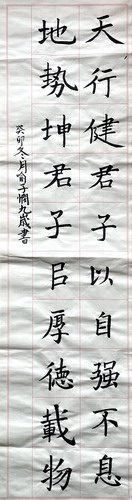 天行健君子以自强不息
地势坤君子㠯厚德載物
癸卯冬月俞子憪九歲書